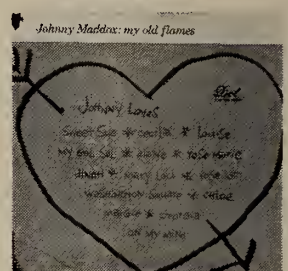 Johnny Maddox: my old flames
Dot
Johnny Loves
Sweet Sue * Cecilia * Louise
My Gal Sal * * Rose Marie
* Mary Lou *
Washington Square * Chloe
Margie * Georgia
on my mind